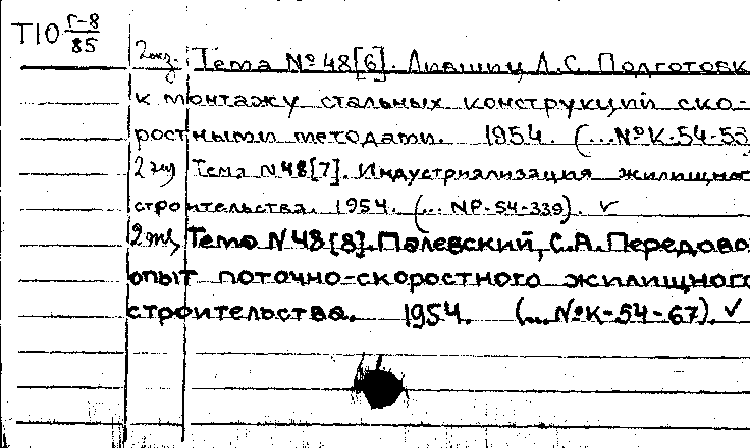 Т10 Г-8/85
2 экз. Тема № 48[6]. Лившиц Л.С. Подготовк
к монтажу стальных конструкций ско-
ростными методами. 1954. (...№К-54-55
2 экз Тема N 48[7]. Индустриализация жилищно
строительства. 1954. (... NР-54-339). ✓
2 экз Тема N 48[8]. Палевский, С.А. Передово
опыт поточно-скоростного жилищного
строительства. 1954. (... №К-54-67). ✓